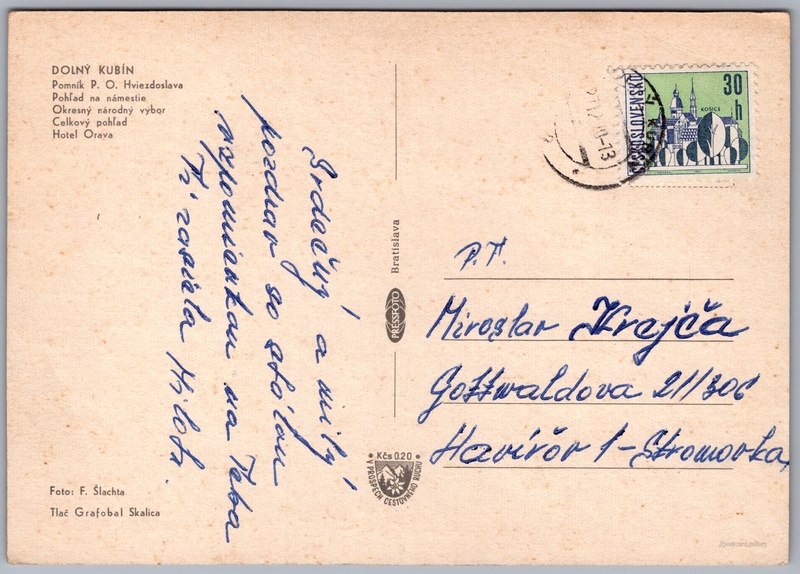 DOLNÝ KUBÍN
Pomník P. O. Hviezdoslava
Pohľad na námestie
Okresný národný výbor
Celkový pohľad
Hotel Orava
Srdečný a milý
pozdrav so stálou
vzpomienkou na Teba
Ti zasiela Miloš.
Foto: F. Šlachta
Tlač Grafobal Skalica
Bratislava
PRESSFOTO
Kčs 0.20
V PROSPECH CESTOVNÉHO RUCHU
ČESKOSLOVENSKO
30 h
KOŠICE
P.T.
Miroslav Krejča
Gottwaldova 21/306
Havířov 1-Stromovka